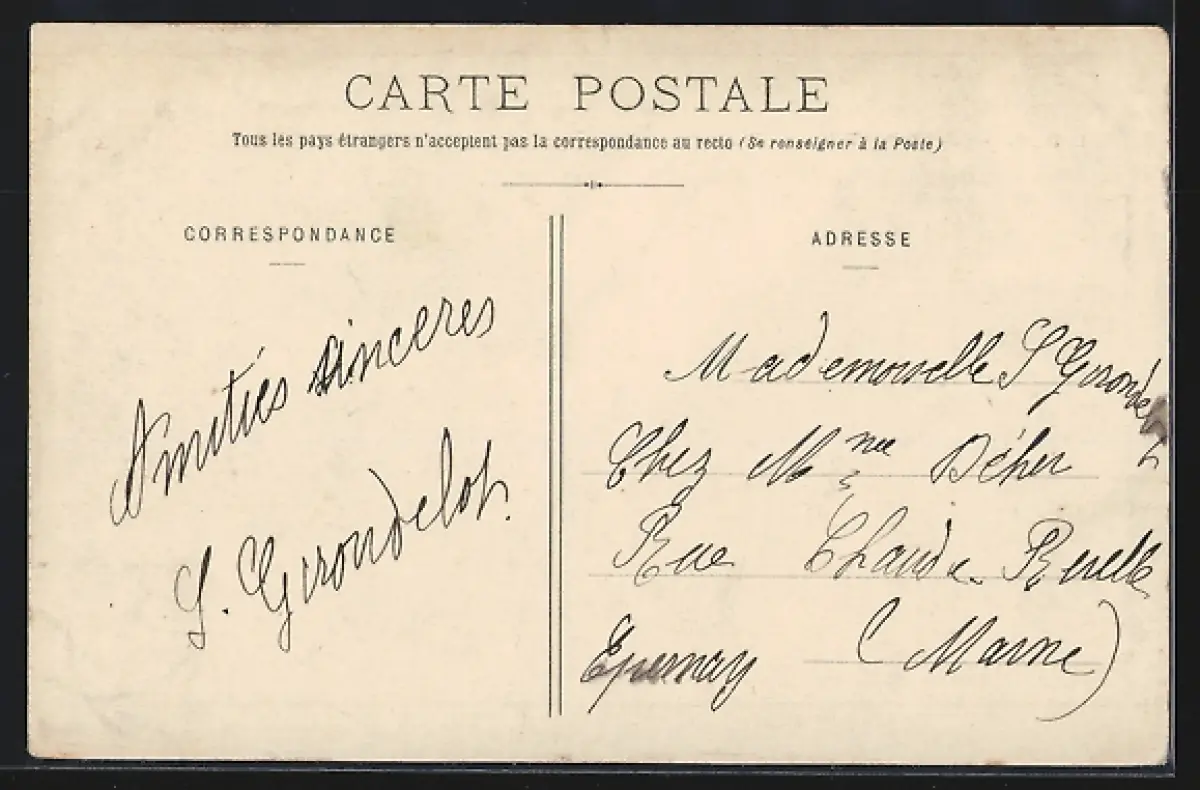 CARTE POSTALE
Tous les pays étrangers n'acceptent pas la correspondance au recto (Se renseigner à la Poste)
CORRESPONDANCE
Amitiés sinceres
S. Girondelot.
ADRESSE
Mademoiselle S Girondelot
Chez Mme Déher
Rue Chaude Ruelle
Epernay (Marne)